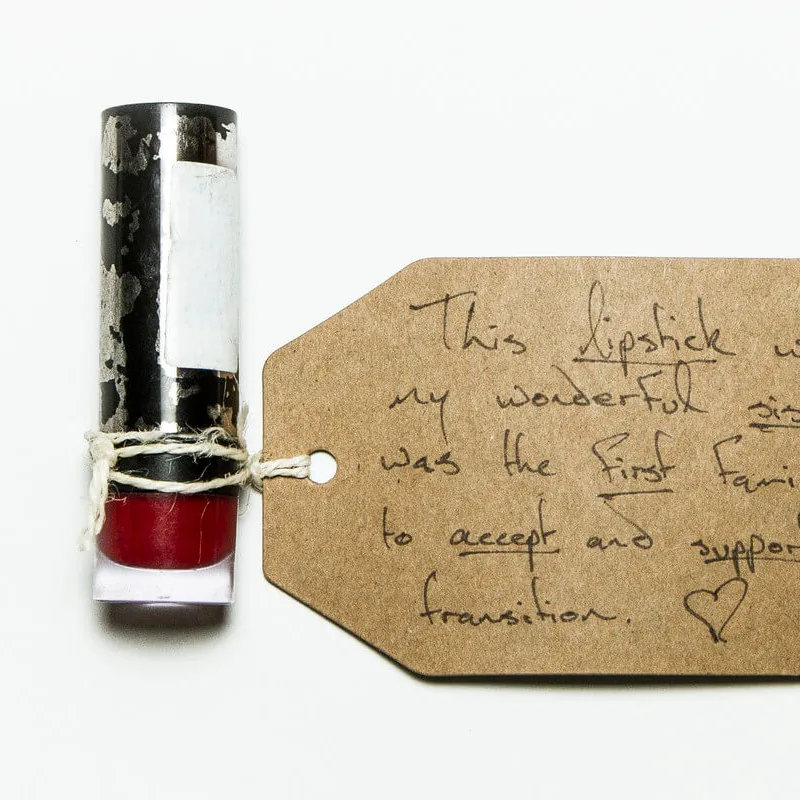 This lipstick w
my wonderful sis
was the first fami
to accept and suppor
transition. ♡